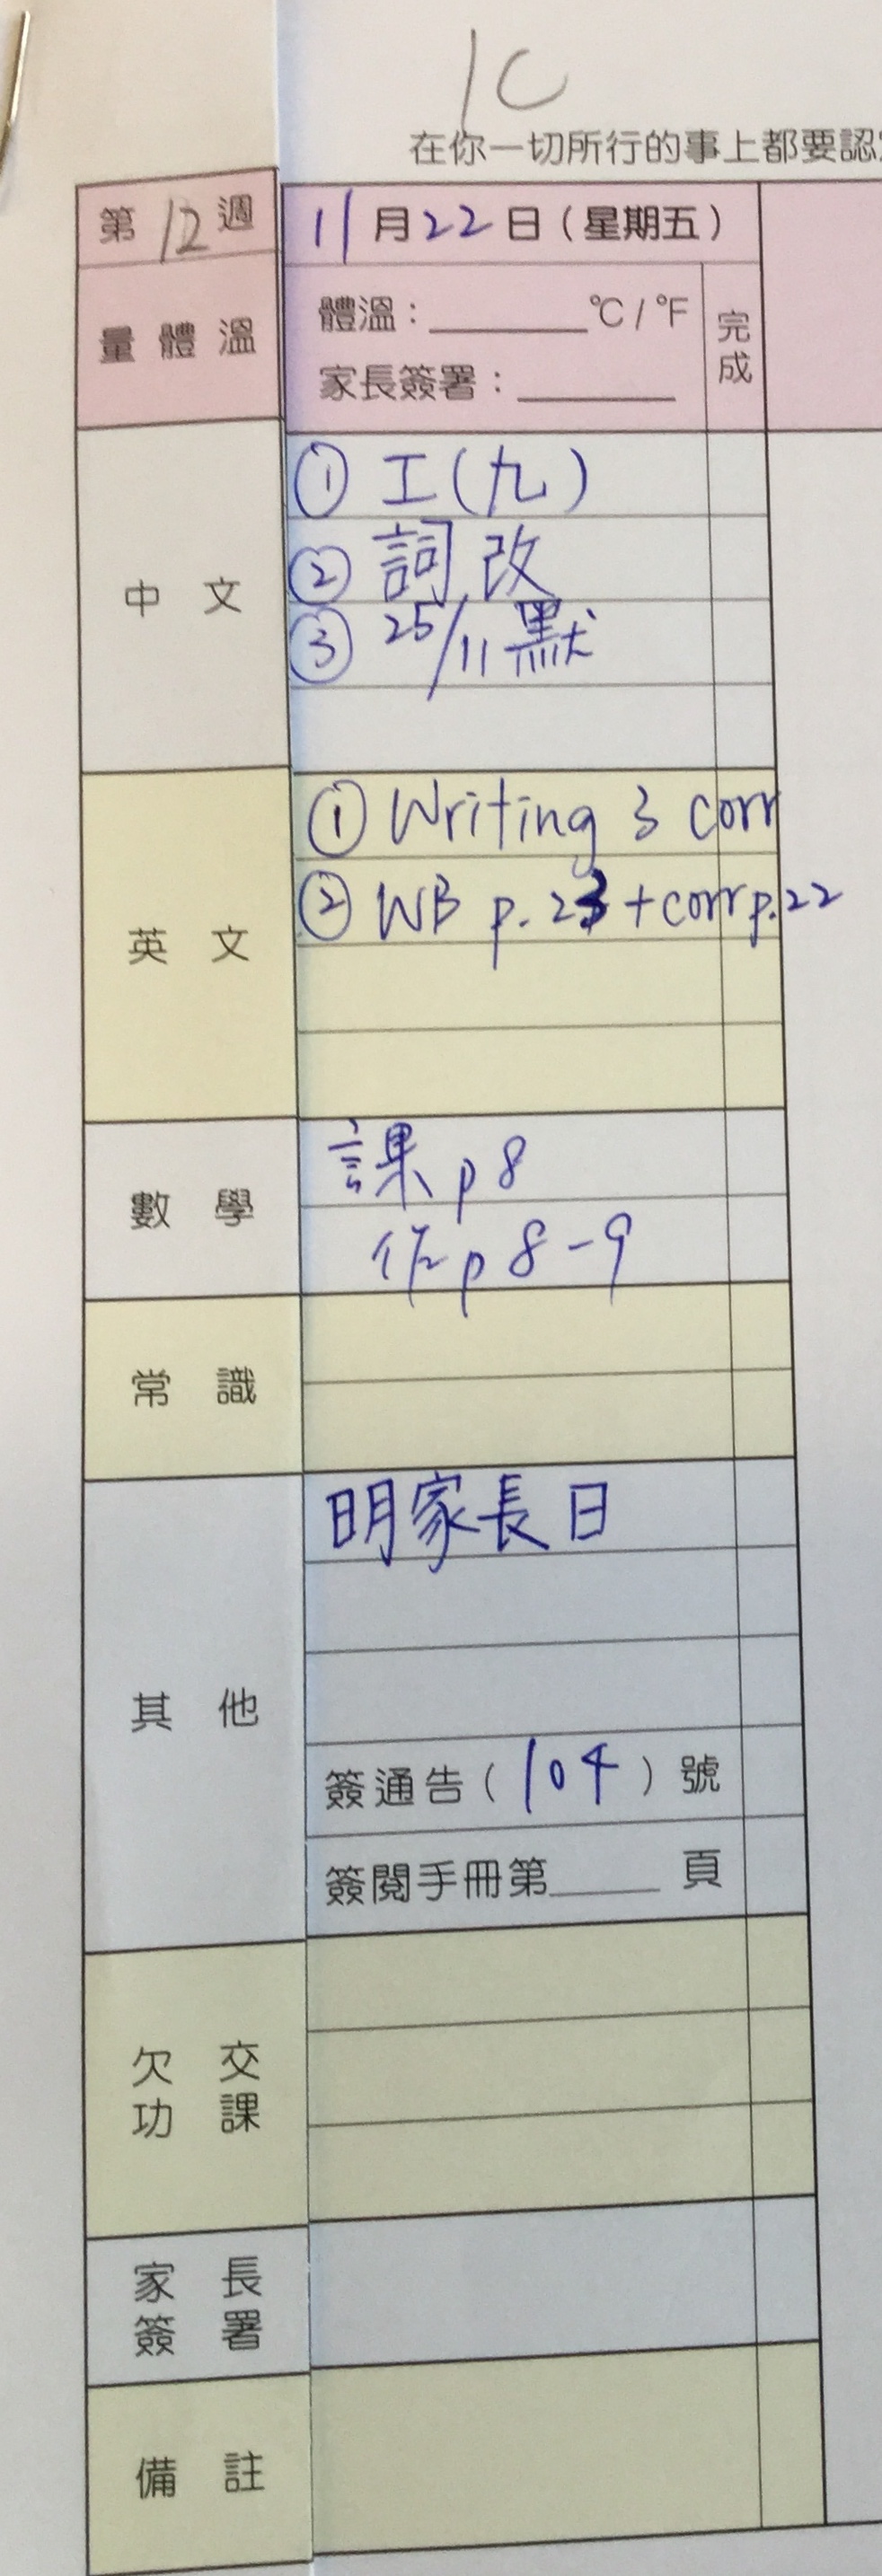 1C
在你一切所行的事上都要認
第12週 11月22日(星期五)
量體溫 體溫：______℃/℉ 完成
家長簽署：______
中文 ① 工(九)
② 詞改
③ 25/11 默
英文 ① Writing 3 corr
② WB p.23 + corr p.22
數學 課 p 8
作 p 8-9
常識
其他 明家長日
簽通告(104)號
簽閱手冊第____頁
欠交功課
家長簽署
備註